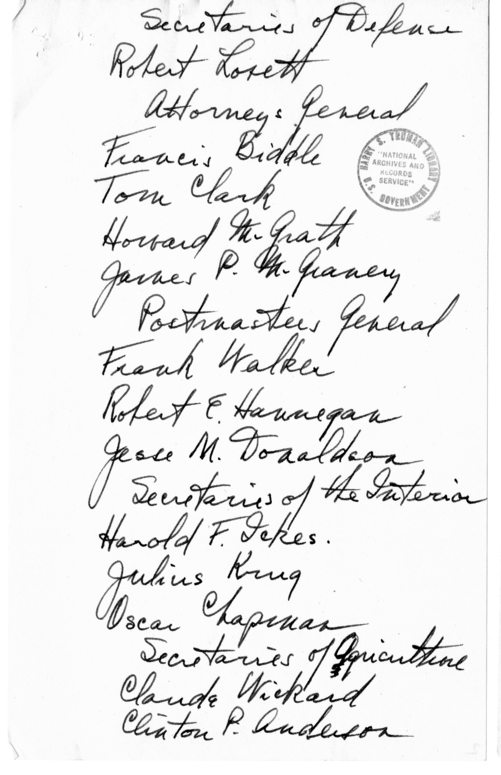 Secretaries of Defense
Robert Lovett
Attorneys General
Francis Biddle
Tom Clark
Howard McGrath
James P. McGranery
Postmasters General
Frank Walker
Robert E. Hannegan
Jesse M. Donaldson
Secretaries of the Interior
Harold F. Ickes.
Julius Krug
Oscar Chapman
Secretaries of Agriculture
Claude Wickard
Clinton P. Anderson
HARRY S. TRUMAN LIBRARY
"NATIONAL
ARCHIVES AND
RECORDS
SERVICE"
U.S. GOVERNMENT